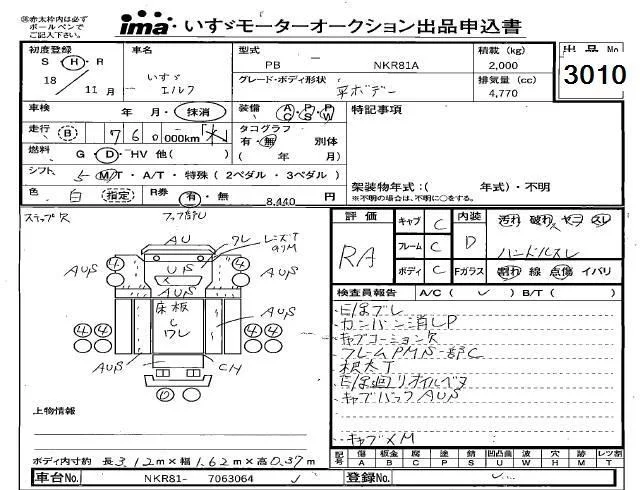 ㊟赤太枠内は必ず
ボールペンで
ご記入下さい。
ima いすゞモーターオークション出品申込書
初度登録 車名 型式 積載 (kg) 出品No.
S・H・R PB - NKR81A 2,000 3010
18 11月 いすゞ エルフ グレード・ボディ形状 排気量 (cc)
平ボデー 4,770
車検 年 月・抹消 装備 AC PS PW 特記事項
走行 B 7 6 0 000km
タコグラフ
有・無 別体
( 年 月)
燃料 G・D・HV 他( )
シフト M/T・A/T・特殊 (2ペダル・3ペダル)
架装物年式:( 年式)・不明
※不明の場合は、不明に○をする。
色 白 指定 R券 有・無 8,440 円
ステップ欠
評価 キャブ C 内装 汚れ 破れ ヤコ スレ
RA フレーム C D ハンドルスレ
ボディ C Fガラス 割れ 線 点傷 イバリ
AU
ワレ
④ ④ ④ ④
AUS US AUS
AUS
床板
ワレ
AUS
AUS CH
検査員報告 A/C ( ✓ ) B/T ( )
カンバン消しP
キャブコーション欠
フレームPMS一部C
根太T
キャブバックAUS
キャブメM
上物情報
ボディ内寸約 長3.12m×幅1.62m×高0.37m
記号 傷A 板金B 腐C 塗P 錆S 凹凸曲U 波W 穴H 跡M レツ割T
車台No. NKR81- 7063064 ✓ 登録No.